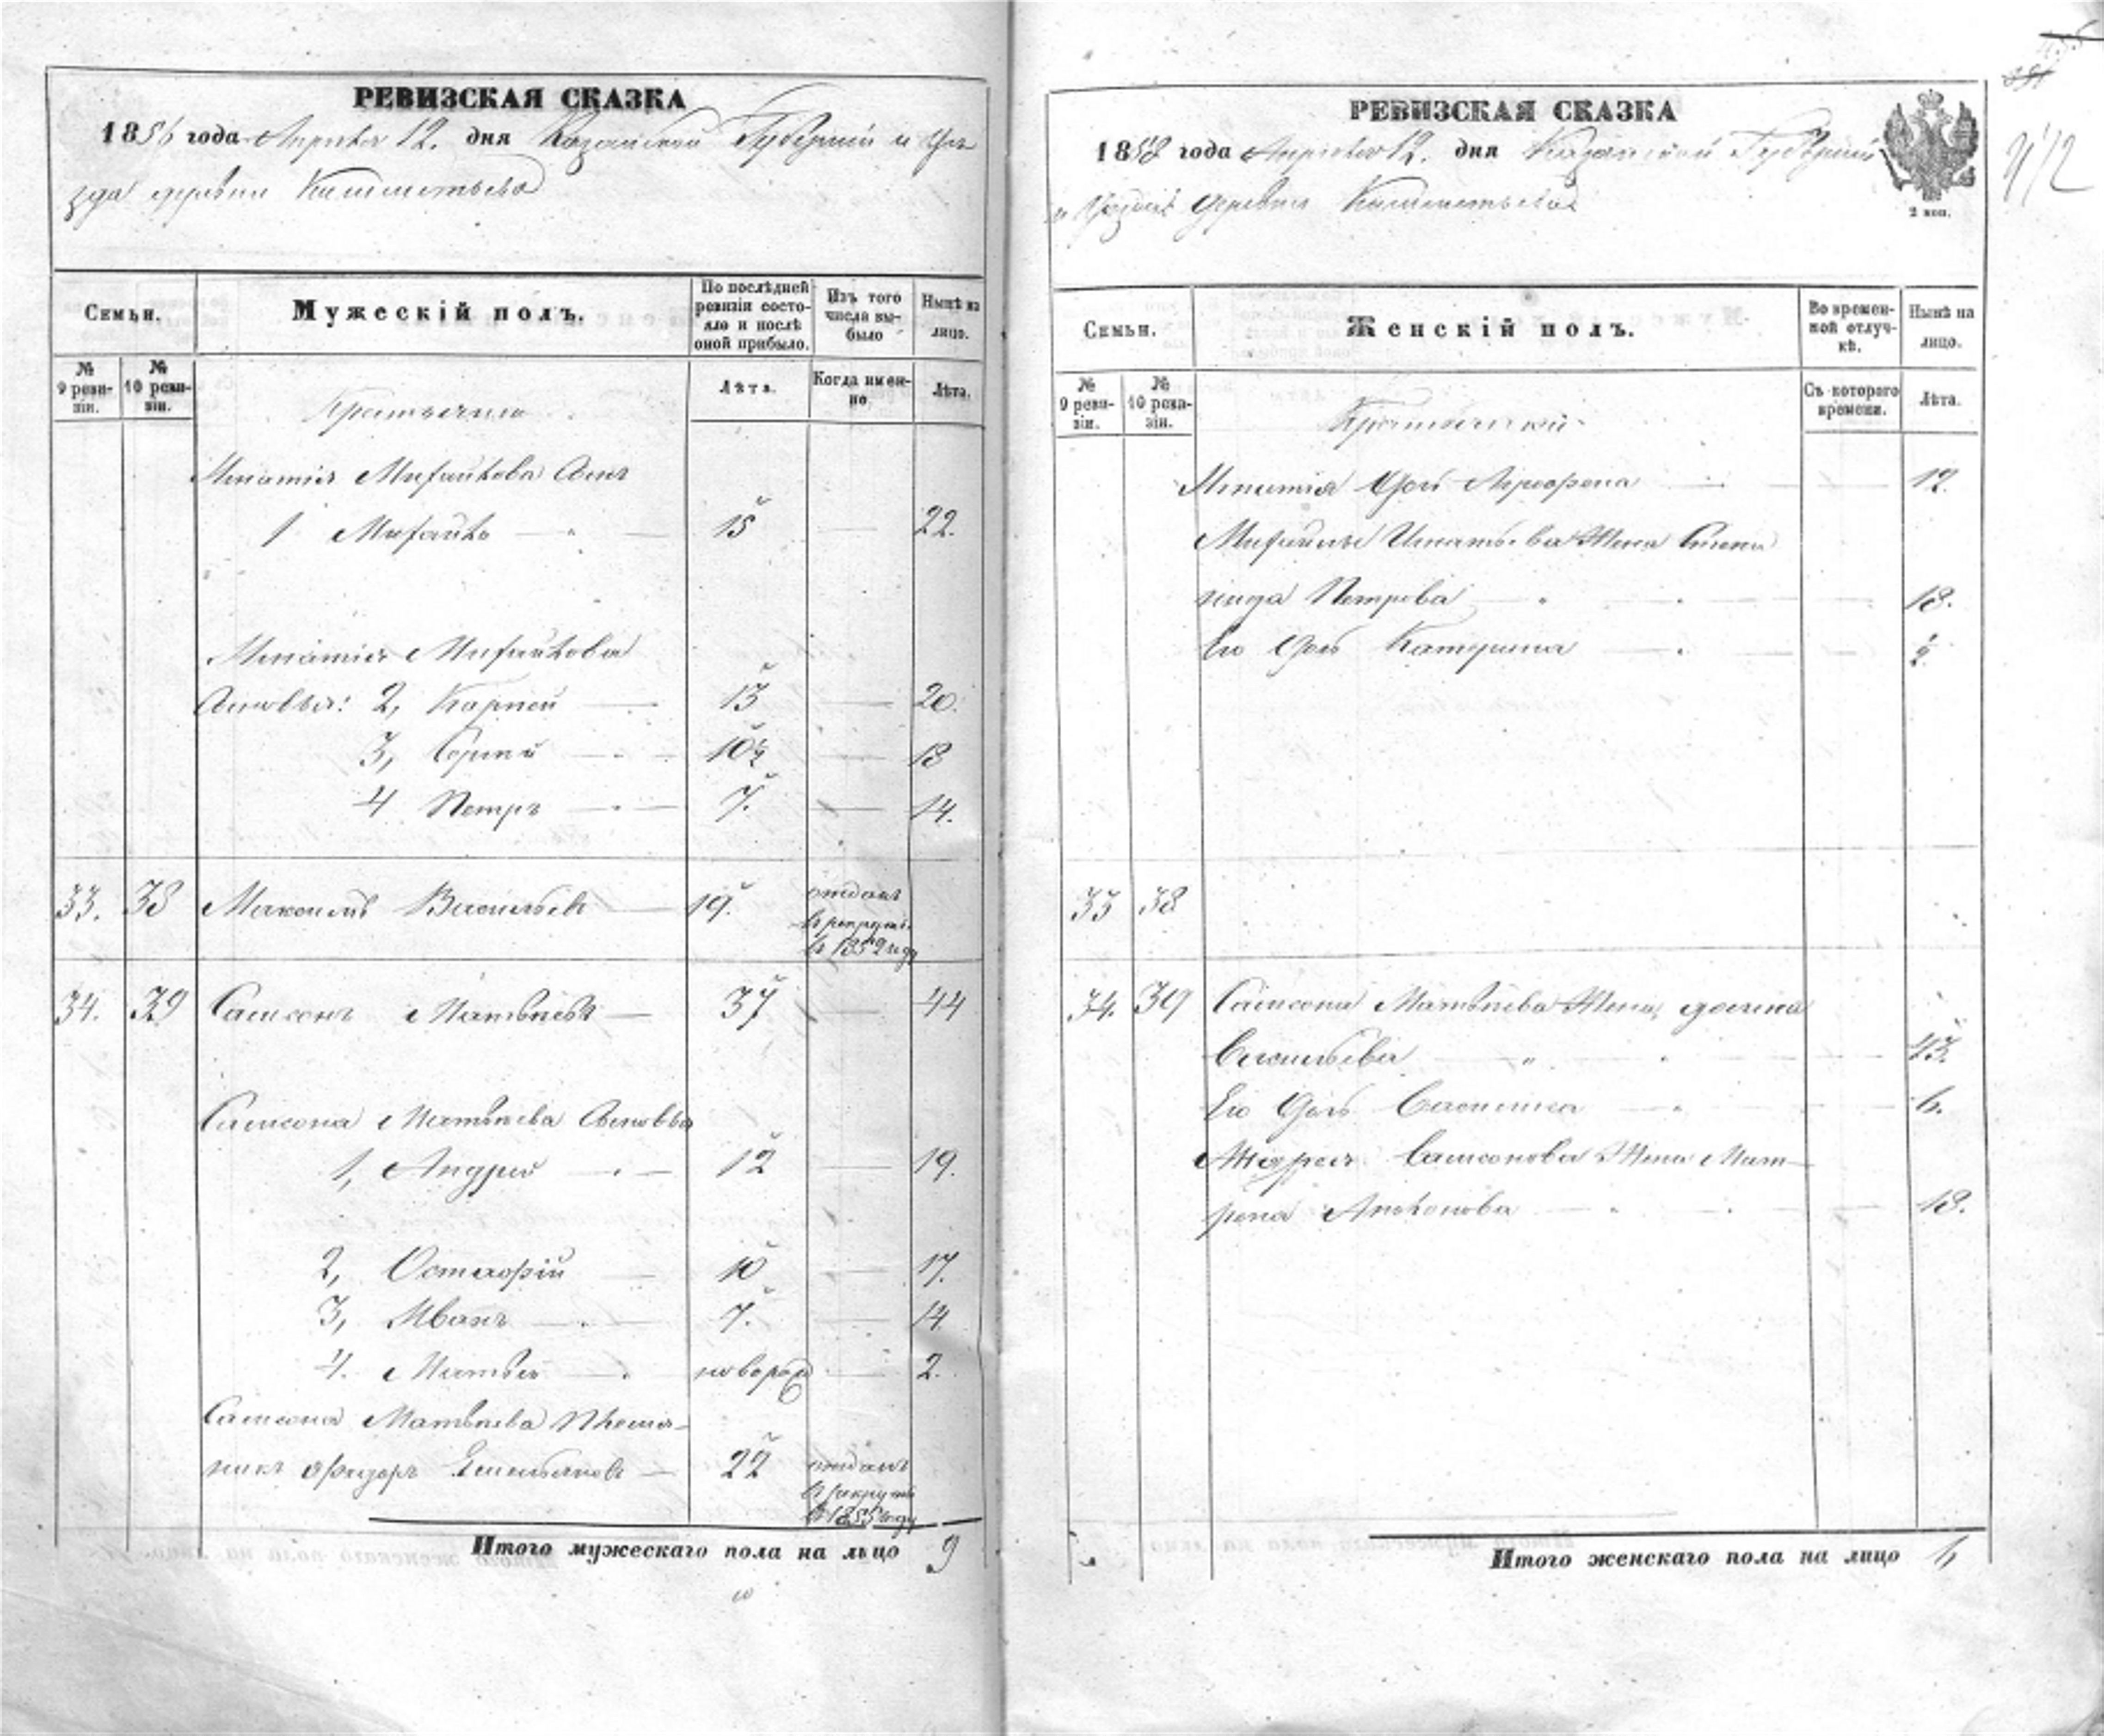 РЕВИЗСКАЯ СКАЗКА
1858 года Апреля 12. дня Казанской Губернии и Уѣ
зда деревни
Семьи.
Мужескій полъ.
По послѣдней ревизіи состояло и послѣ оной прибыло.
Изъ того числа выбыло
Нынѣ на лицо.
№ 9 ревизіи.
№ 10 ревизіи.
Лѣта.
Когда именно.
Лѣта.
Игнатія Михайлова Сынъ
1 Михайло 15 22.
Игнатія Михайлова
Сыновья: 2, Карпей 13 20.
3, Сергей 10½ 18
4 Петръ 7. 14.
33. 38 Максимъ Васильевъ 19. отданъ
в рекруты
в 1852 году
34. 39 Самсонъ Матвѣевъ 37 44
Самсона Матвѣева Сыновья
1, Андрей 12 19.
2, Остафій 10 17.
3, Иванъ 7. 14.
4. Матвей новорож 2.
Самсона Матвѣева Племя-
никъ Федоръ Емельяновъ 22 отданъ
в рекруты
в 1855 году
Итого мужескаго пола на лицо 9
РЕВИЗСКАЯ СКАЗКА
1858 года Апреля 12. дня Казанской Губерніи
и Уѣзда деревни
2 коп.
Семьи.
Женскій полъ.
Во временной отлучкѣ.
Нынѣ на лицо.
№ 9 ревизіи.
№ 10 ревизіи.
Съ котораго времени.
Лѣта.
Игнатія Дочь 12.
Михайлы Игнатьева Жена Степа
нида Петрова 18.
Ею Дочь Катерина 2
33 38
34. 39 Самсона Матвѣева Жена
Васильева 43.
Ею Дочь Василиса 6.
Андрея Самсонова Жена Мат-
рена 18.
Итого женскаго пола на лицо 6